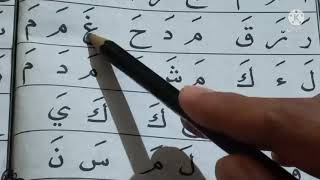 رَ زَ قَ مَ دَ حَ غَ مَ مَ
لَ ءَ كَ مَ شَ مَ دَ مَ
كَ كَ يَ
لَ مَ سَ نَ